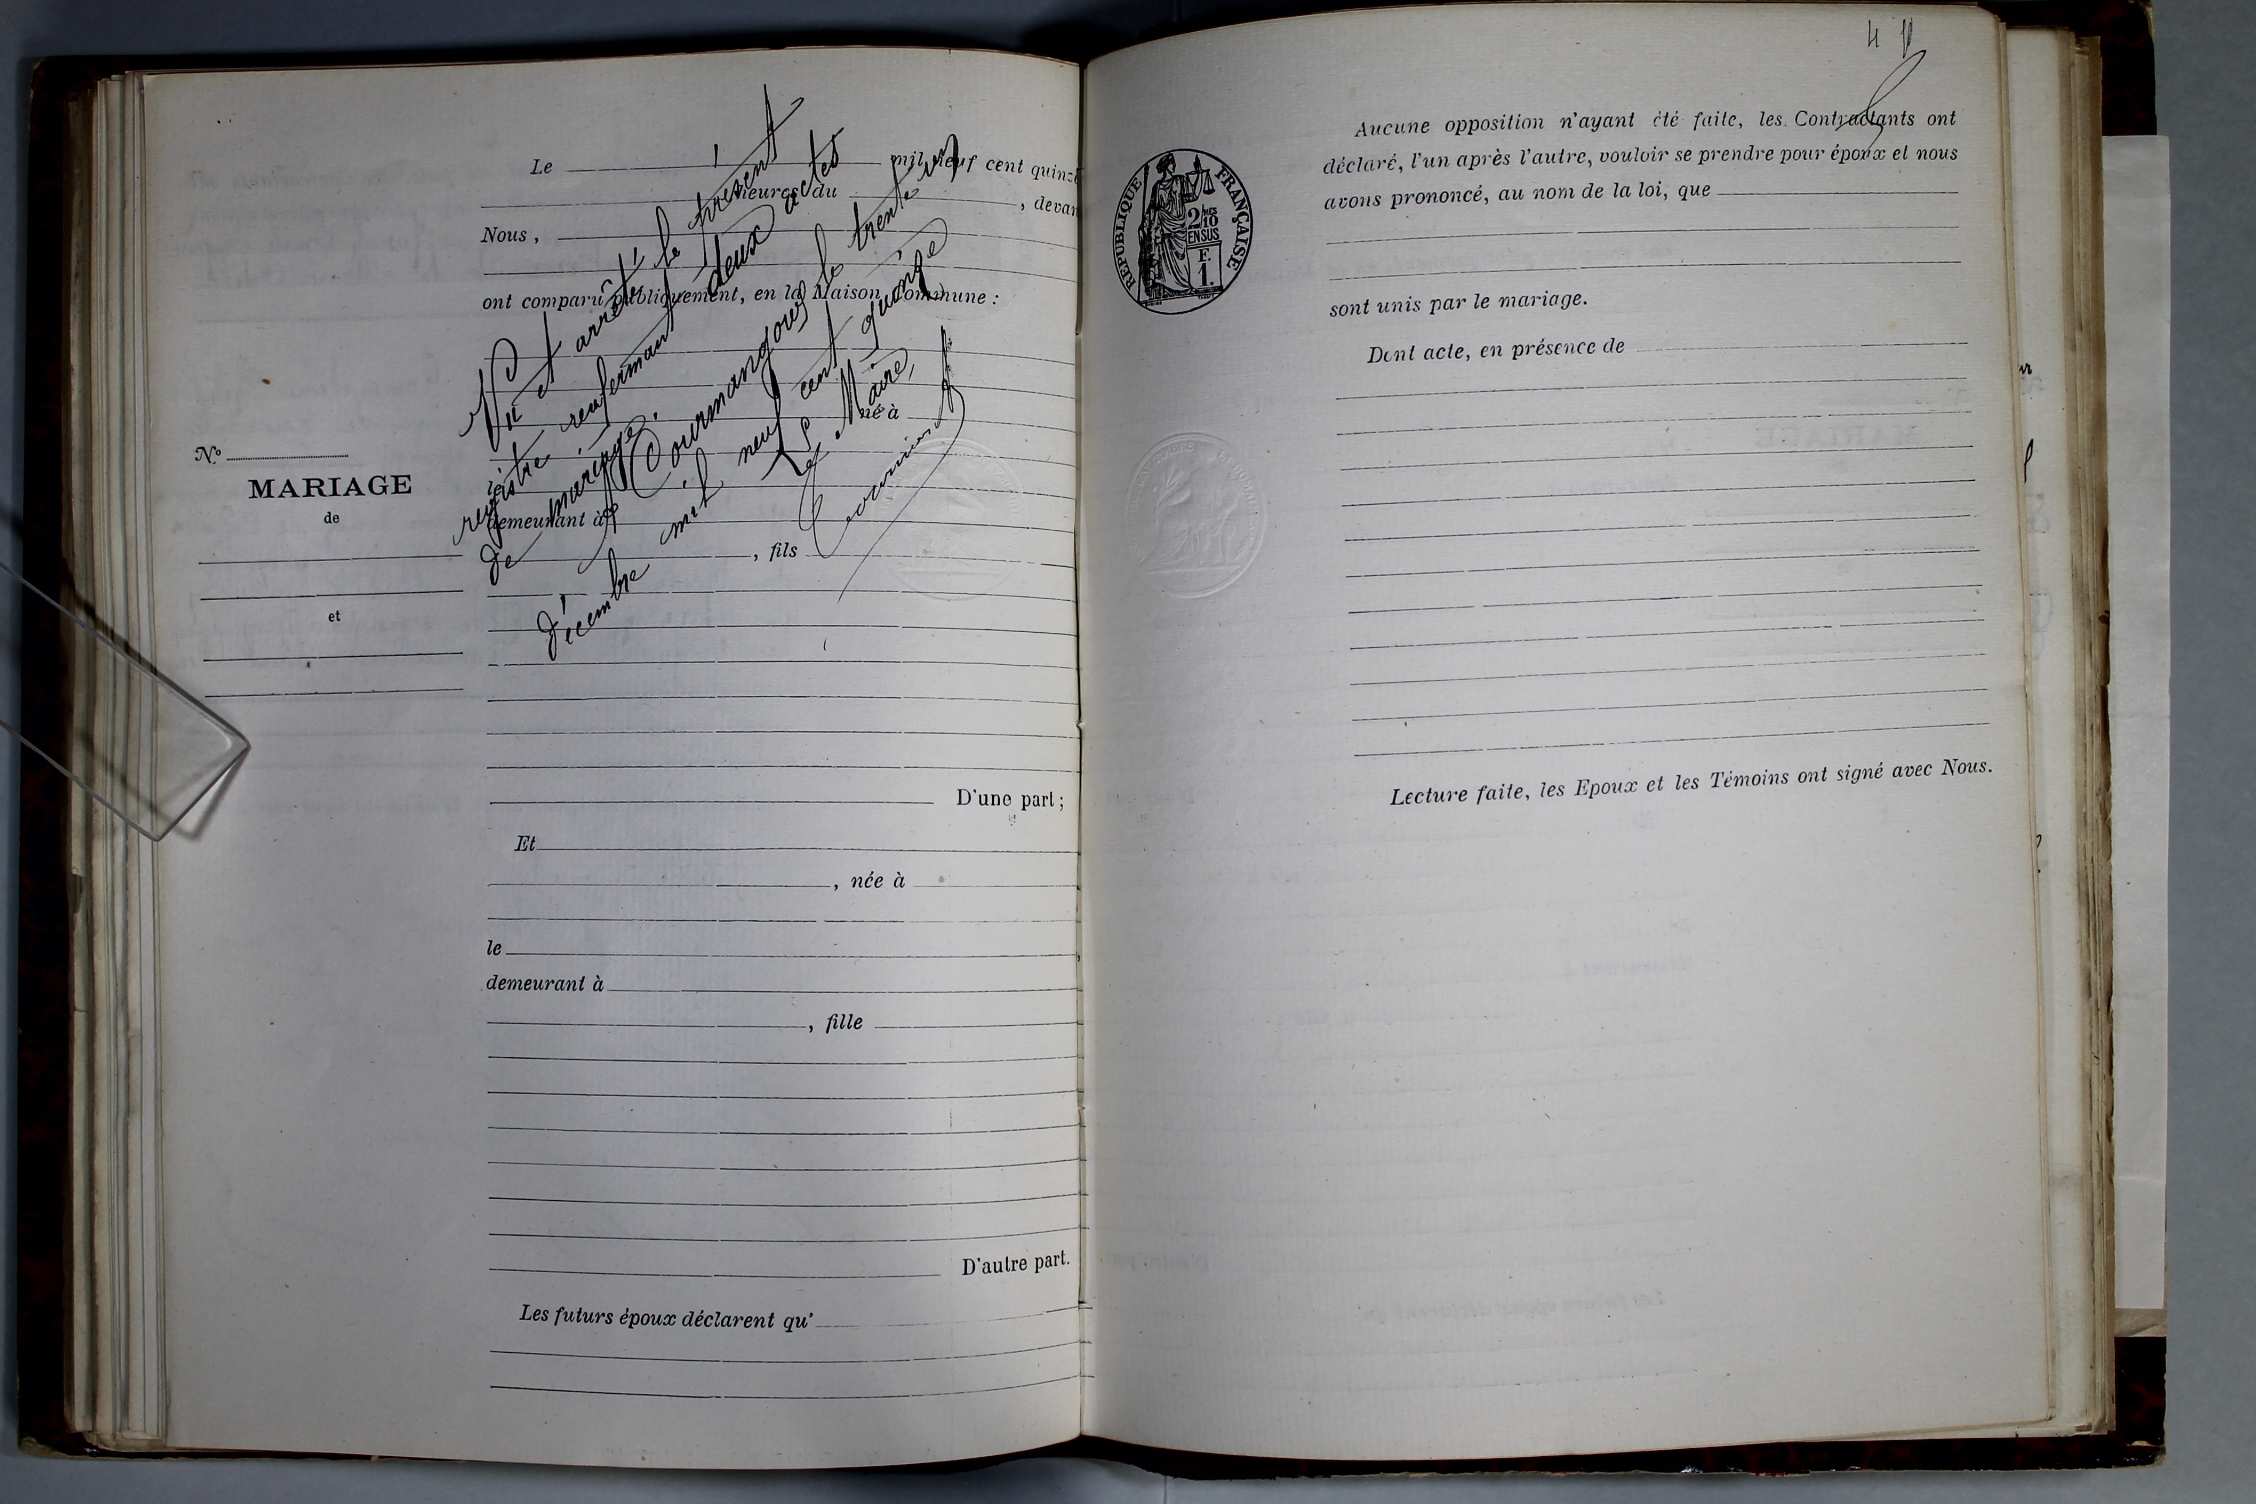 Le mil neuf cent quinze
heures du , devan
Nous ,
ont comparu publiquement, en la Maison Commune :
né à
le
demeurant à
, fils
D'une part ;
Et
, née à
le
demeurant à
, fille
D'autre part.
Les futurs époux déclarent qu'
Vu et arrêté le présent
registre renfermant deux actes
de mariage.
A Courmangoux le trente un
décembre mil neuf cent quinze
Le Maire,
No
MARIAGE
de
et
4
Aucune opposition n'ayant été faite, les Contractants ont
déclaré, l'un après l'autre, vouloir se prendre pour époux et nous
avons prononcé, au nom de la loi, que
sont unis par le mariage.
Dont acte, en présence de
Lecture faite, les Epoux et les Témoins ont signé avec Nous.
RÉPUBLIQUE FRANÇAISE
2/10es
EN SUS
F.
1.